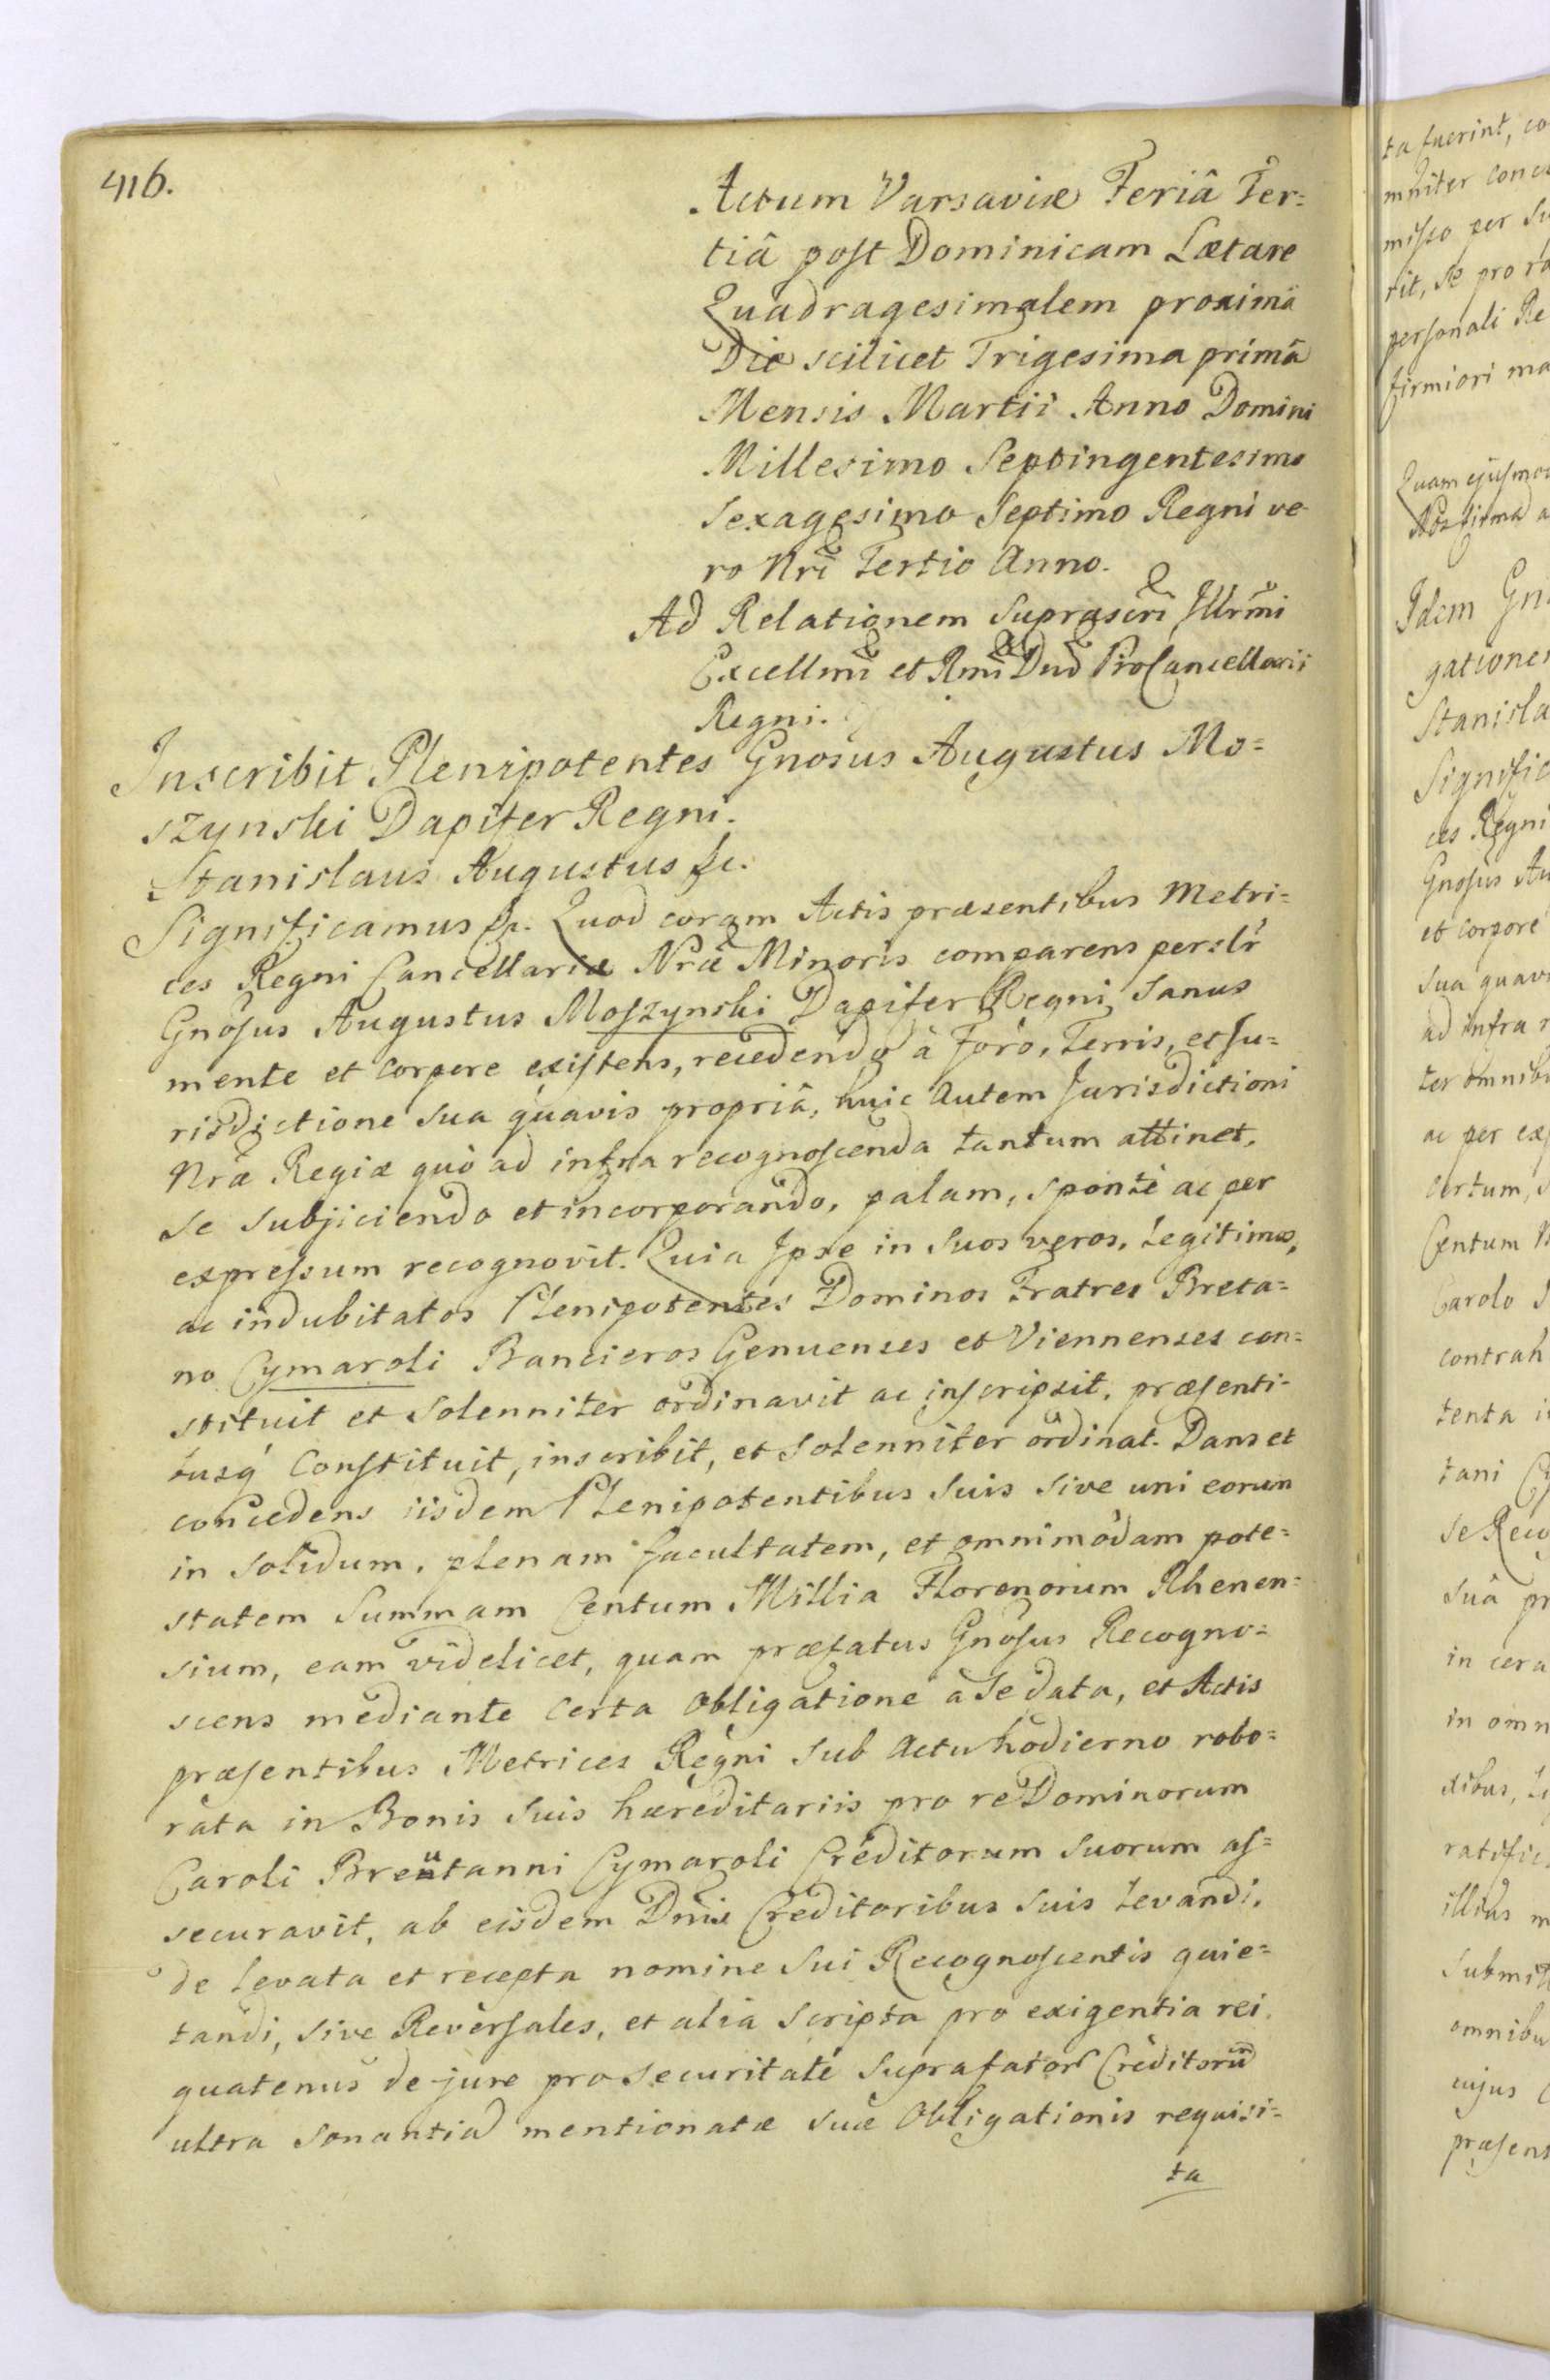 416.
Actum Varsaviæ Feriâ Ter=
tiâ post Dominicam Lætare
Quadragesimalem proximâ
Die scilicet Trigesima primâ
Mensis Martii Anno Domini
Millesimo Septingentesimo
Sexagesimo Septimo Regni ve-
ro Nri Tertio Anno.
Ad Relationem Suprascri Illrmi
Excellmi et Rmi Dnd ProCancellarii
Regni.
Inscribit Plenipotentes Gnosus Augustus Mo=
szynski Dapifer Regni.
Stanislaus Augustus &c.
Significamus &c. Quod coram Actis præsentibus Metri=
ces Regni Cancellariæ Nræ Minoris comparens perslr
Gnosus Augustus Moszynski Dapifer Regni Sanus
mente et corpore existens, recedendo à Foro, Terris, et Ju=
risdictione sua quavis propriâ, huic autem Jurisdictioni
Nræ Regiæ quò ad infra recognoscenda tantum attinet,
se subjiciendo et incorporando, palam, sponte ac per
expressum recognovit. Quia Ipse in Suos veros, Legitimos,
ac indubitatos Plenipotentes Dominos Fratres Breta=
no Cymaroli Bancieros Genuenses et Viennenses con=
stituit et solenniter ordinavit ac inscripsit, præsenti-
busq Constituit, inscribit, et solenniter ordinat. Dans et
concedens iisdem Plenipotentibus Suis sive uni eorum
in solidum, plenam facultatem, et omnimodam pote=
statem Summam Centum Millia Florenorum Rhenen=
sium, eam videlicet, quam præfatus Gnosus Recogno=
scens mediante certa Obligatione à se data, et Actis
præsentibus Metrices Regni sub actu hodierno robo=
rata in Bonis Suis hæreditariis pro re Dominorum
Caroli Breutanni Cymaroli Creditorum Suorum as=
securavit, ab eisdem Dnis Creditoribus Suis Levandi,
de Levata et recepta nomine Sui Recognoscentis quie=
tandi, sive Reversales, et alia Scripta pro exigentia rei
quatenus de jure pro securitate Suprafator Creditorum
ultra sonantiâ mentionatæ suæ Obligationis requisi=
ta
ta fuerint, co
mniter conce
misso per Su
rit, se pro ra
personali Re
firmiori ma
Quam ejusmo
Idem Gn
gatione
Stanisla
Signific
ces Regni
Gnosus Au
et corpore
sua quavi
ad infra r
ter omnibu
ac per ex
certum,
Centum M
Carolo
contrah
tenta i
tani Cy
se Reco
suâ pr
in cera
in omn
ratific
illius m
Submit
omnibu
cujus
præsens